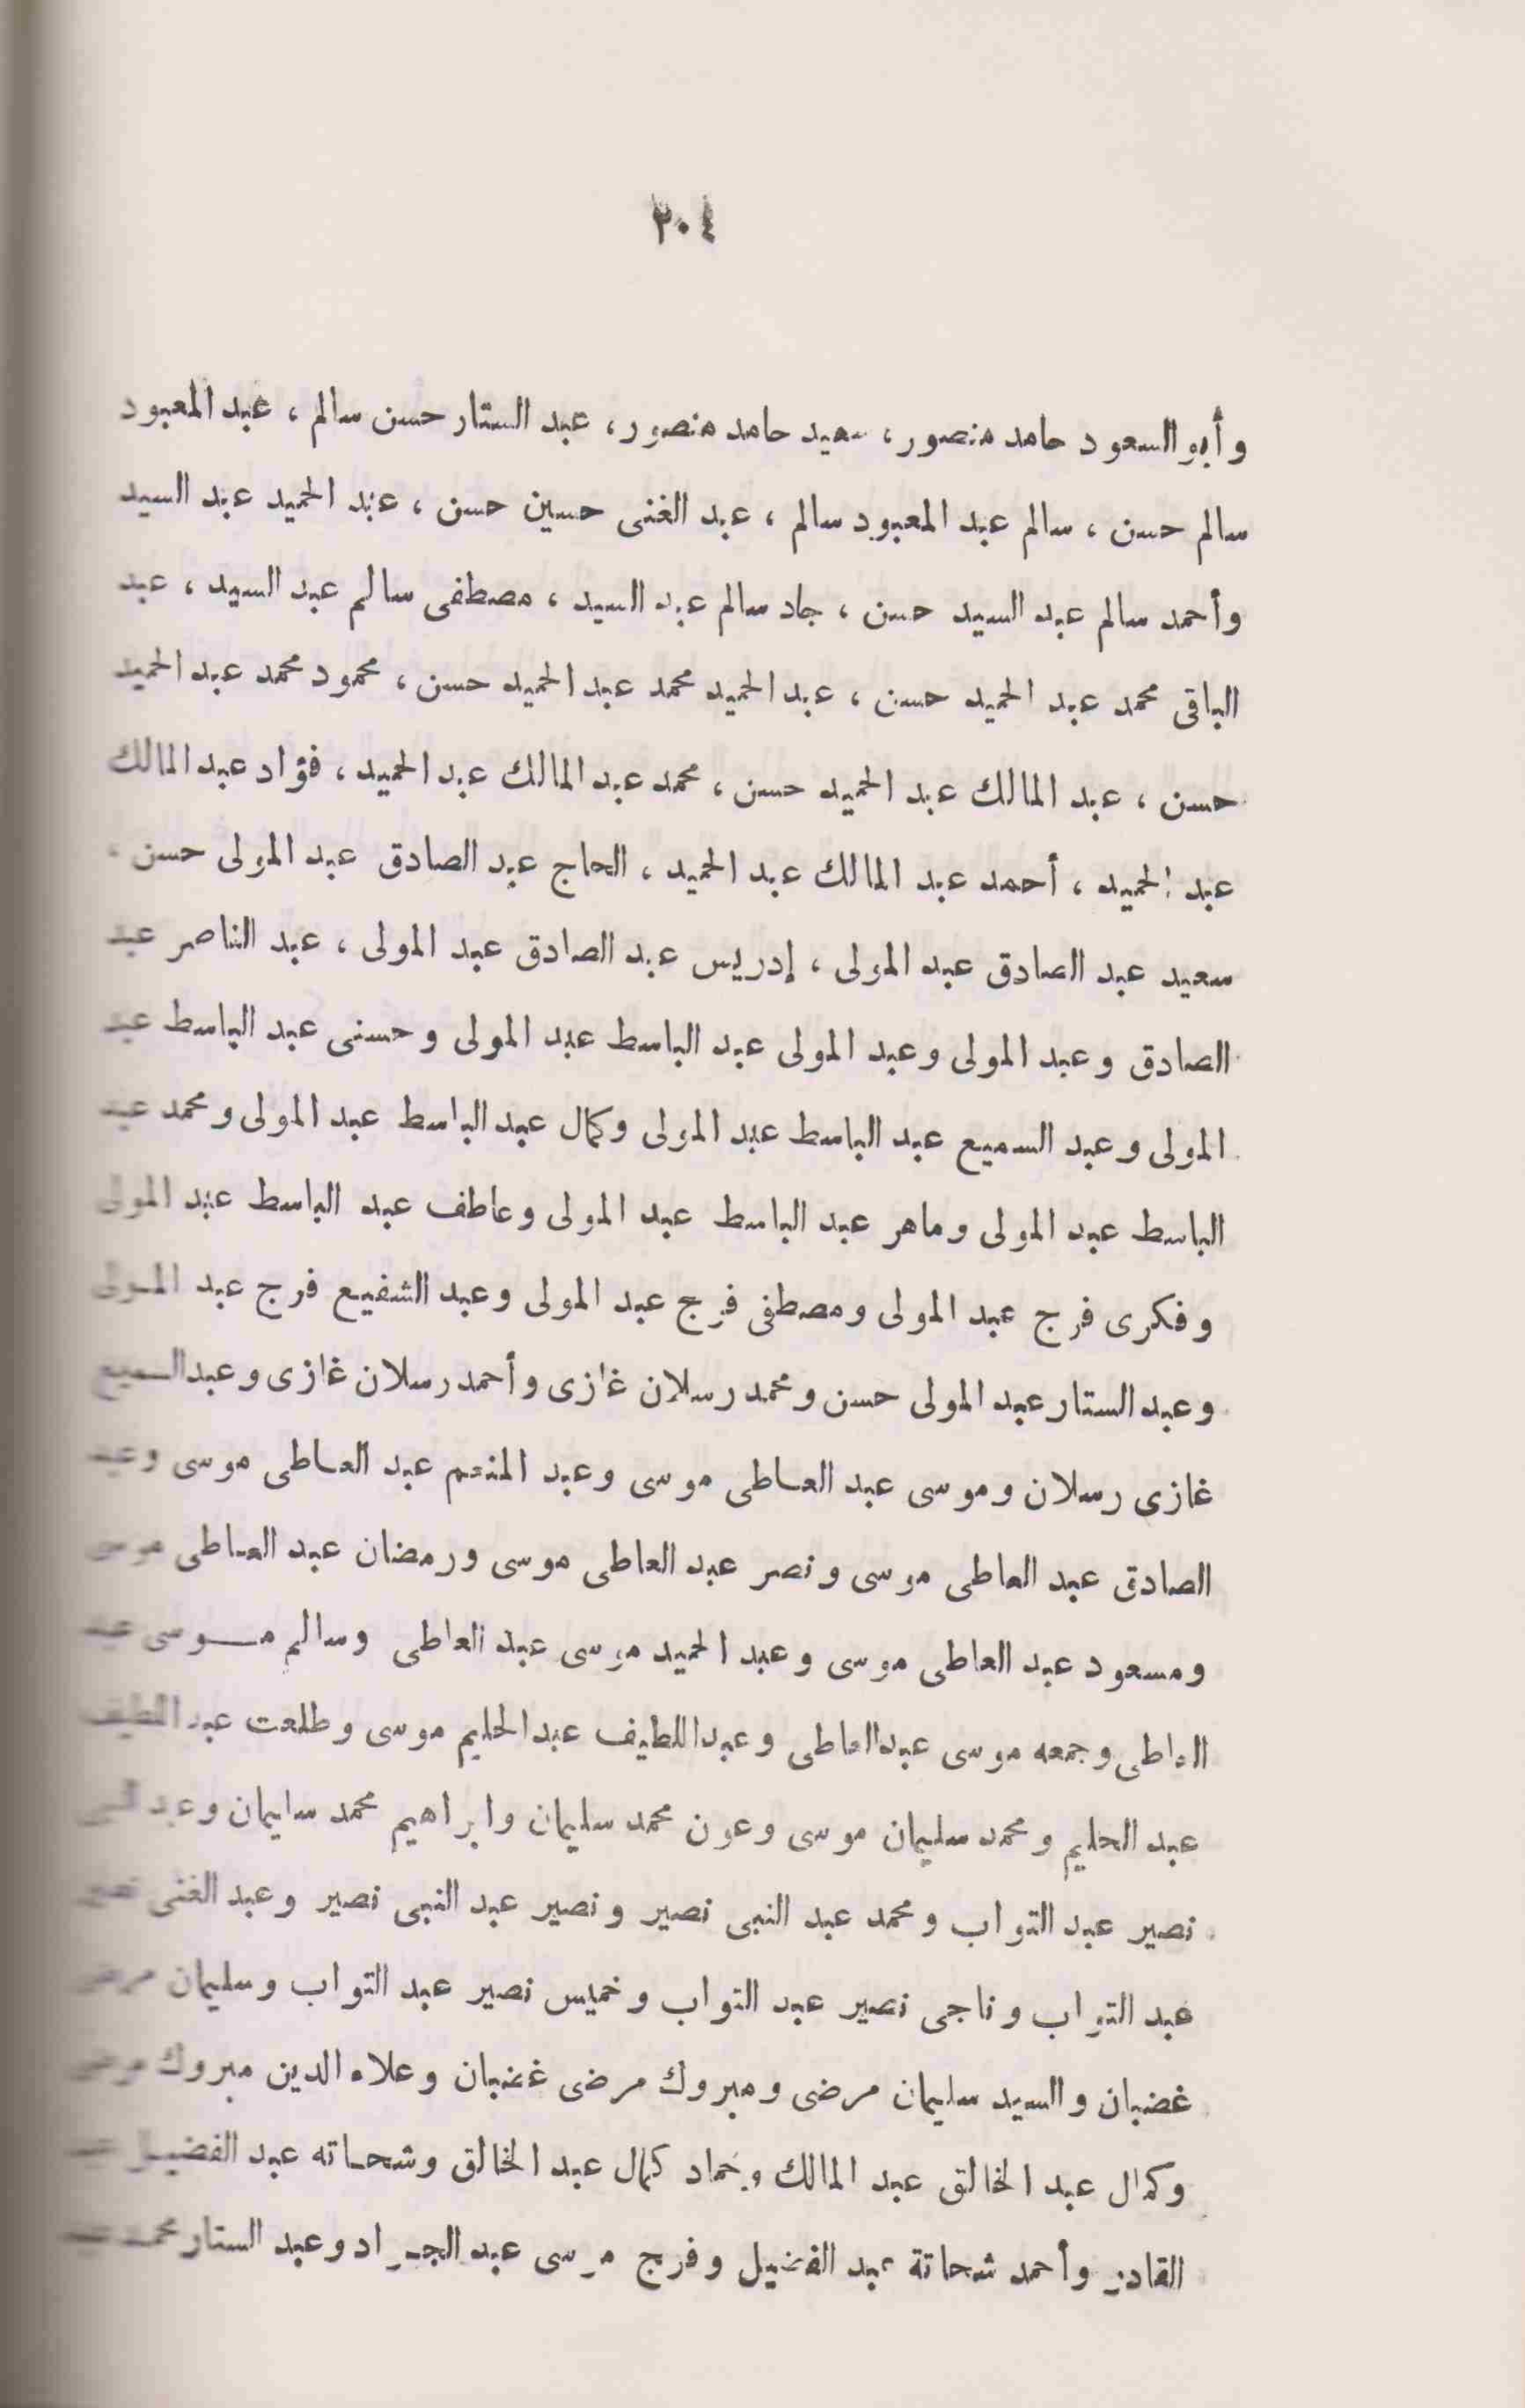 ٢٠٤
وأبو السعود حامد منصور، سعيد حامد منصور، عبد الستار حسن سالم ، عبد المعبود
سالم حسن ، سالم عبد المعبود سالم ، عبد الغنى حسين حسن ، عبد الحميد عبد السيد
وأحمد سالم عبد السيد حسن ، جاد سالم عبد السيد ، مصطفى سالم عبد السيد ، عبد
الباقى محمد عبد الحميد حسن ، عبد الحميد محمد عبد الحميد حسن ، محمود محمد عبد الحميد
حسن ، عبد المالك عبد الحميد حسن ، محمد عبد المالك عبد الحميد ، فؤاد عبد المالك
عبد الحميد ، أحمد عبد المالك عبد الحميد ، الحاج عبد الصادق عبد المولى حسن ،
سعيد عبد الصادق عبد المولى ، إدريس عبد الصادق عبد المولى ، عبد الناصر عبد
الصادق وعبد المولى وعبد المولى عبد الباسط عبد المولى وحسنى عبد الباسط عبد
المولى وعبد السميع عبد الباسط عبد المولى وكمال عبد الباسط عبد المولى ومحمد عبد
الباسط عبد المولى وماهر عبد الباسط عبد المولى وعاطف عبد الباسط عبد المولى
وفكرى فرج عبد المولى ومصطفى فرج عبد المولى وعبد الشفيع فرج عبد المولى
وعبد الستار عبد المولى حسن ومحمد رسلان غازى وأحمد رسلان غازى وعبد السميع
غازى رسلان وموسى عبد العاطى موسى وعبد المنعم عبد العاطى موسى وعبد
الصادق عبد العاطى موسى ونصر عبد العاطى موسى ورمضان عبد العاطى موسى
ومسعود عبد العاطى موسى وعبد الحميد موسى عبد العاطى وسالم موسى عبد
العاطى وجمعه موسى عبد العاطى وعبد اللطيف عبد الحليم موسى وطلعت عبد اللطيف
عبد الحليم ومحمد سليمان موسى وعون محمد سليمان وابراهيم محمد سليمان وعبد النبى
نصير عبد التواب ومحمد عبد النبى نصير ونصير عبد النبى نصير وعبد الغنى نصير
عبد التواب وناجى نصير عبد التواب وخميس نصير عبد التواب وسليمان مرضى
غضبان والسيد سليمان مرضى ومبروك مرضى غضبان وعلاء الدين مبروك مرضى
وكمال عبد الخالق عبد المالك وحماد كمال عبد الخالق وشحاته عبد الفضيل عبد
القادر وأحمد شحاتة عبد الفضيل وفرج موسى عبد الجواد وعبد الستار محمد